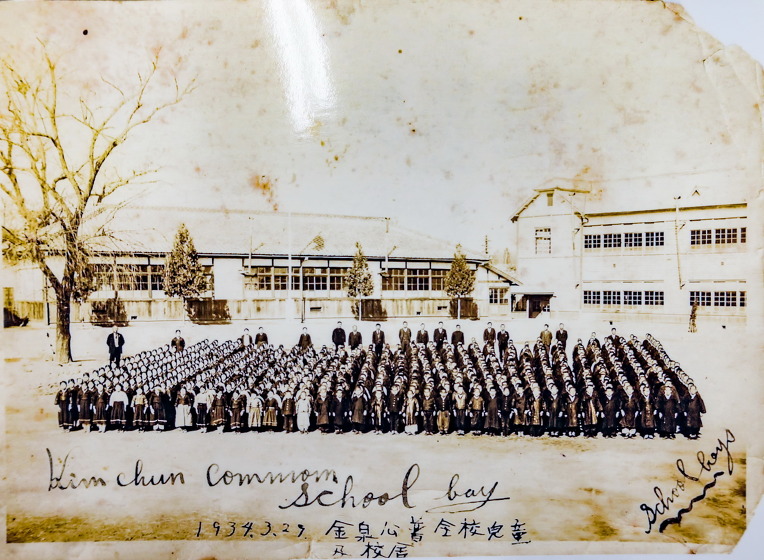 Kim chun Common
School bay
School boys
1934.3.29 金泉公普全校兒童
及校舍